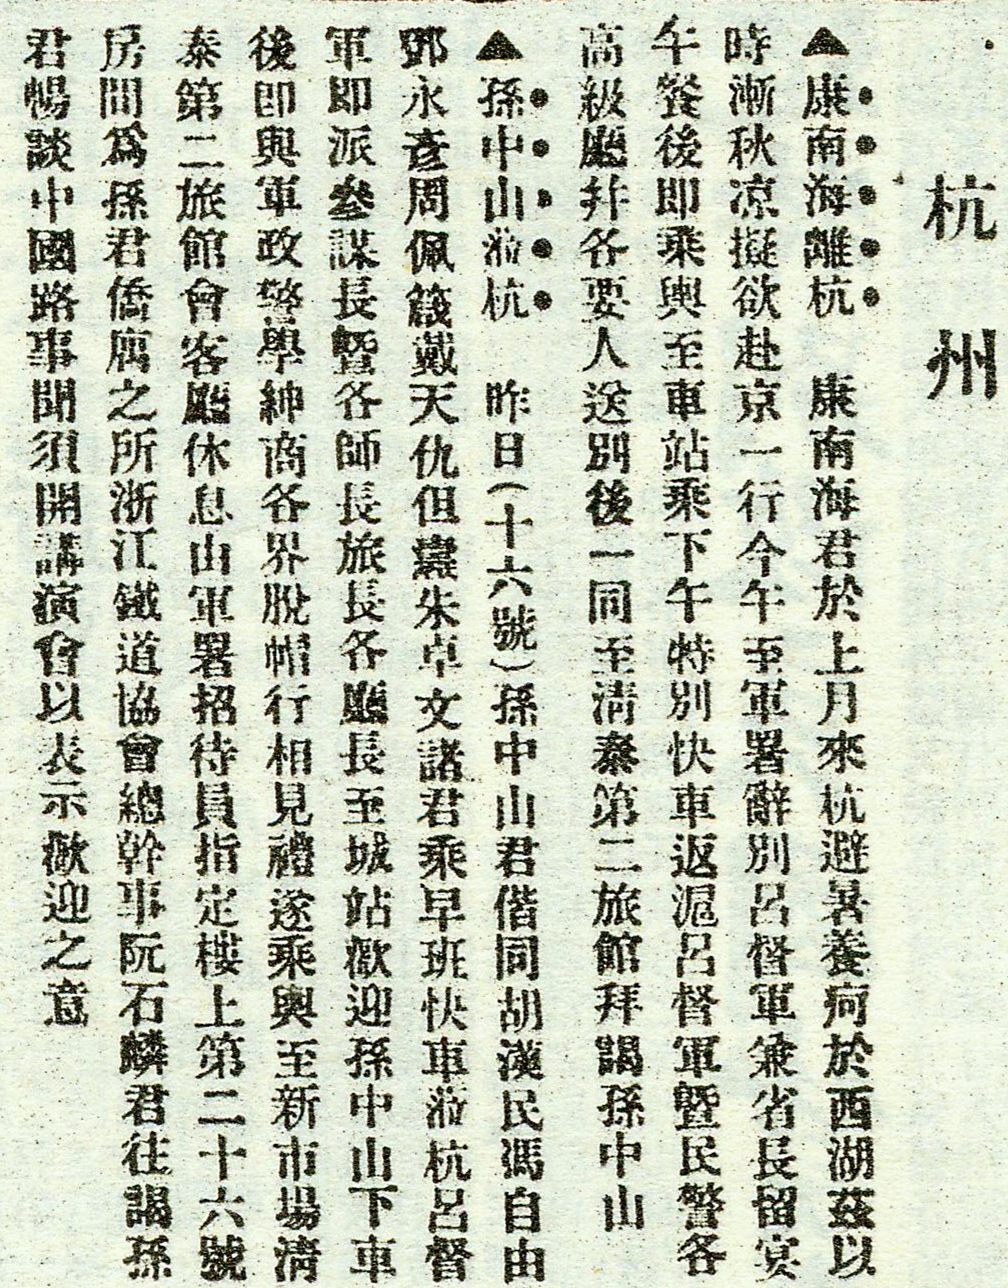 杭州
▲康南海離杭　康南海君於上月來杭避暑養疴於西湖茲以
時漸秋凉擬欲赴京一行今午至軍署辭別呂督軍兼省長留宴
午餐後即乘輿至車站乘下午特別快車返滬呂督軍暨民警各
高級廳并各要人送別後一同至清泰第二旅館拜謁孫中山
▲孫中山蒞杭　昨日(十六號)孫中山君偕同胡漢民馮自由
鄧永彥周佩箴戴天仇但燾朱卓文諸君乘早班快車蒞杭呂督
軍即派參謀長暨各師長旅長各廳長至城站歡迎孫中山下車
後卽與軍政警學紳商各界脫帽行相見禮遂乘輿至新市場清
泰第二旅館會客廳休息由軍署招待員指定樓上第二十六號
房間為孫君僑寓之所浙江鐵道協會總幹事阮石麟君往謁孫
君暢談中國路事聞須開講演會以表示歡迎之意